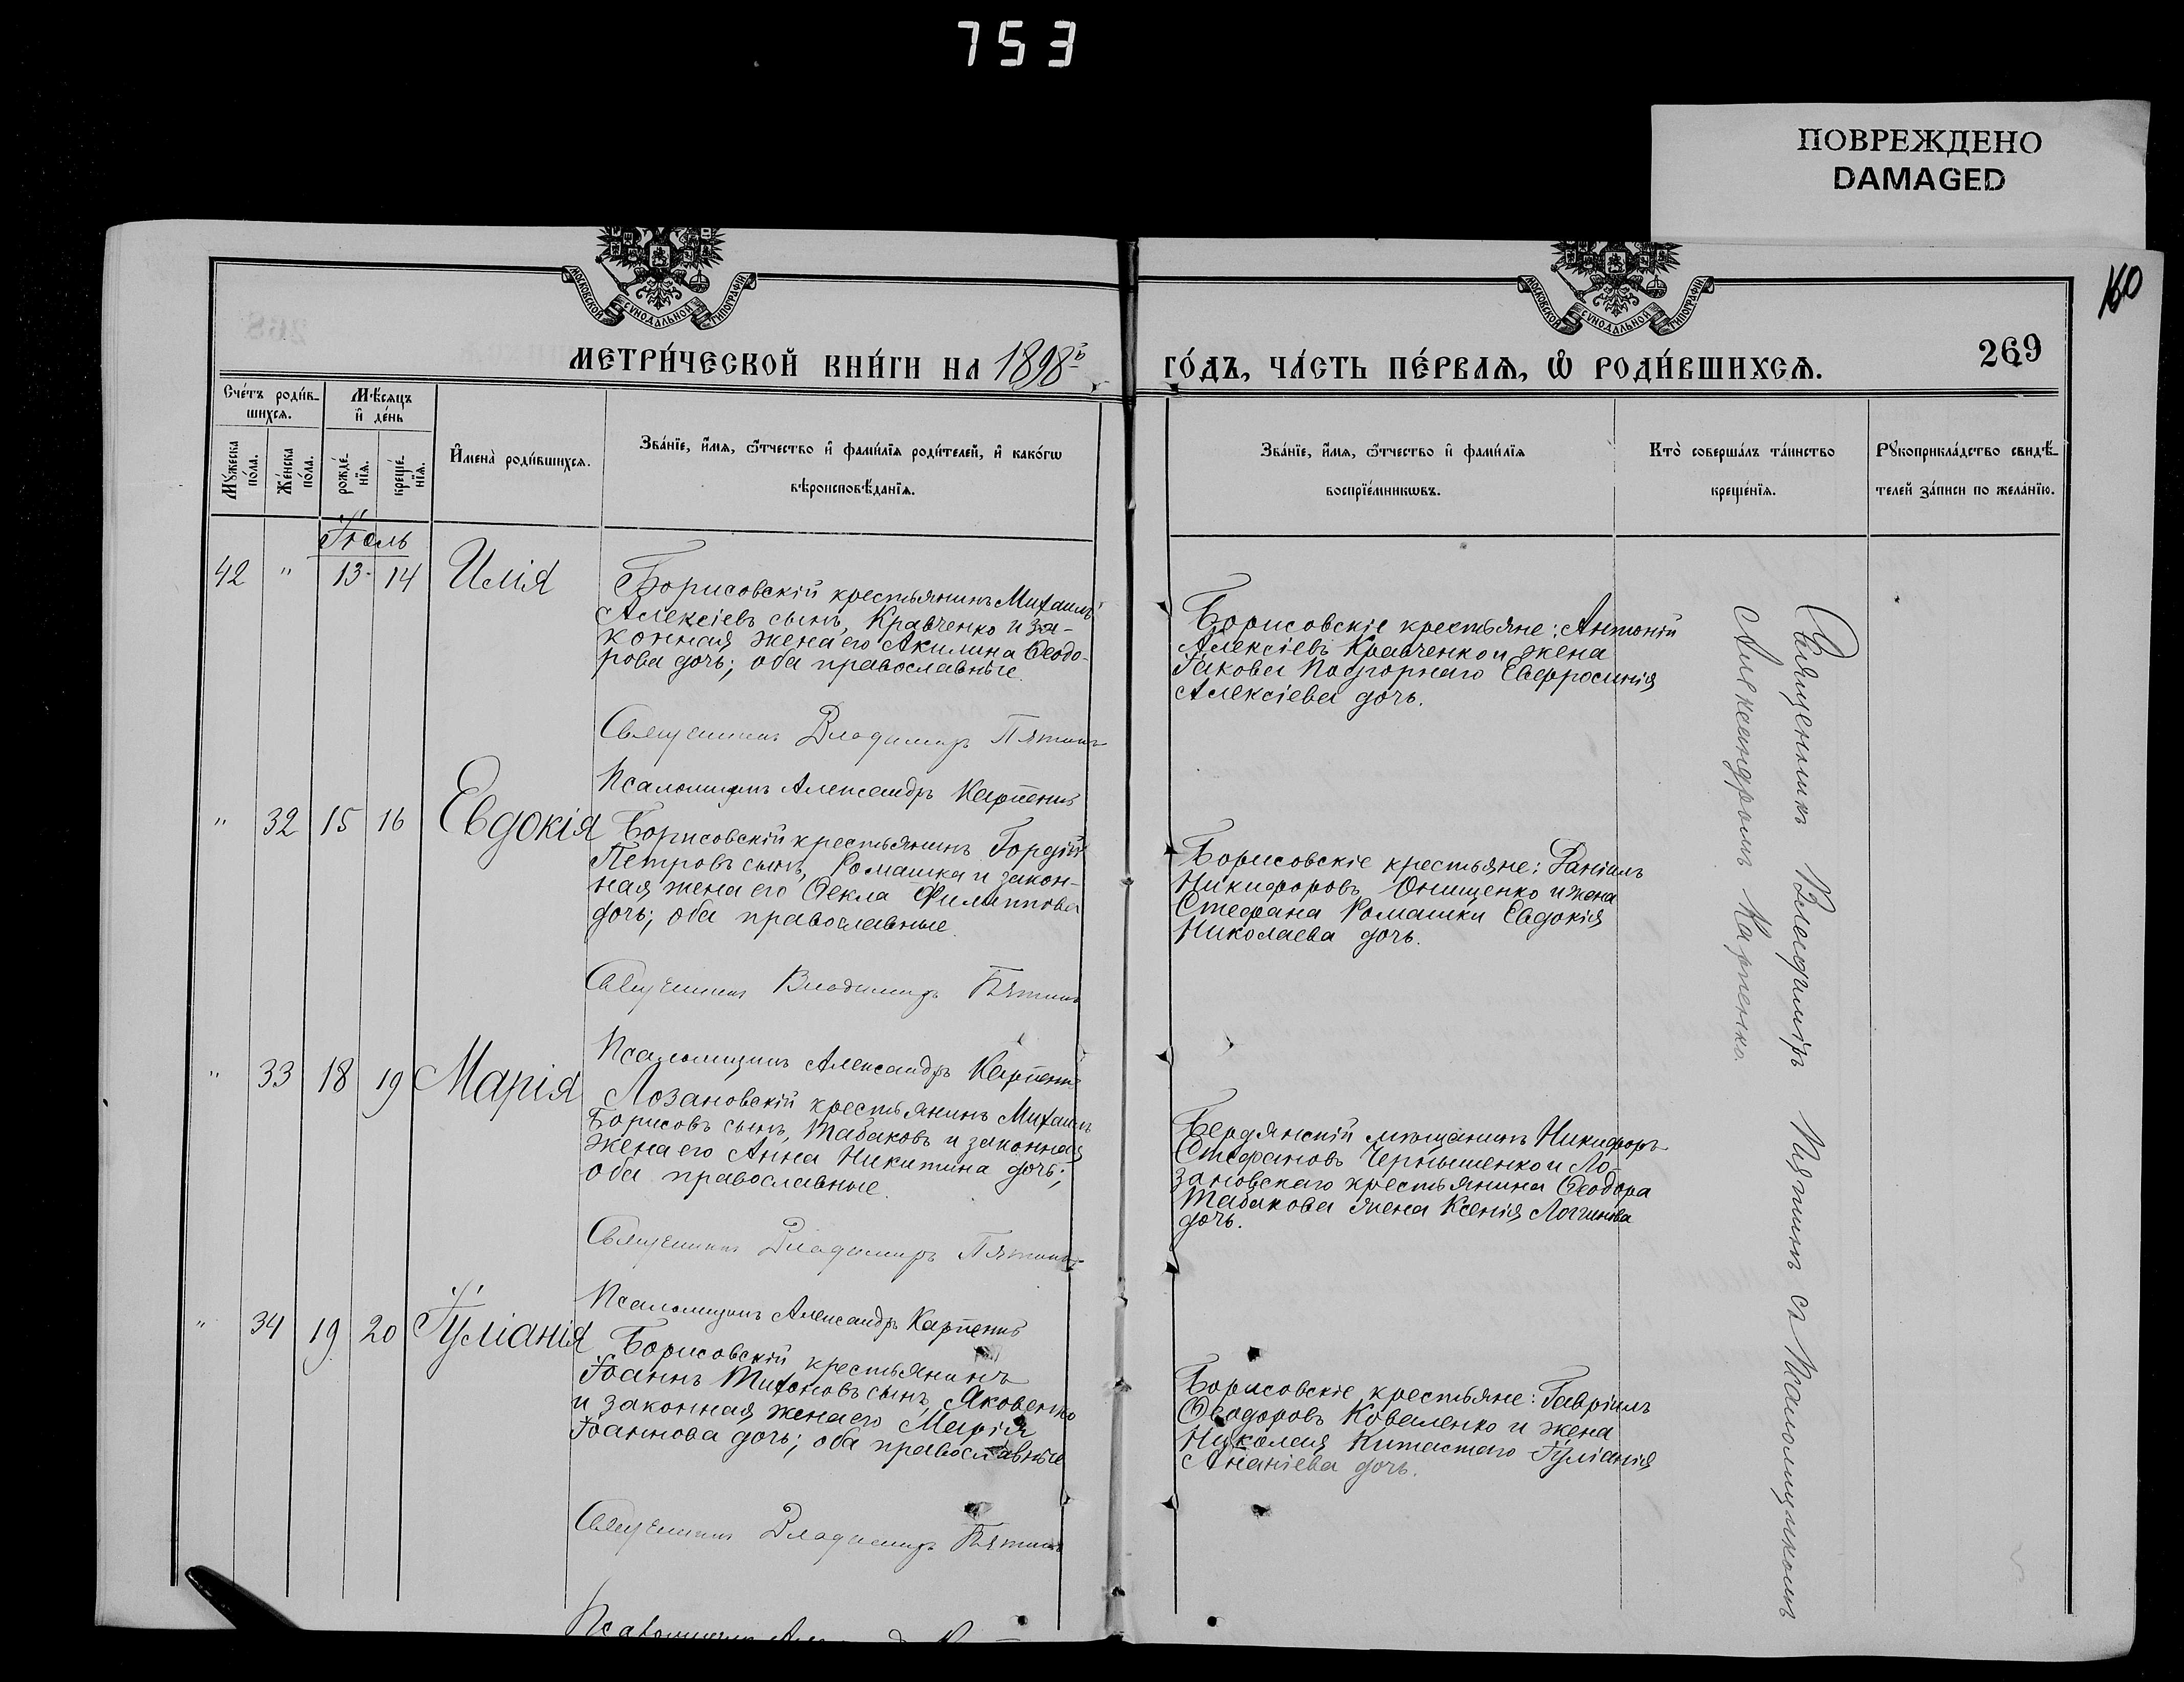 753
ПОВРЕЖДЕНО
DAMAGED
160
МОСКОВСКОЙ СѴНОДАЛЬНОЙ ТИПОГРАФІИ
МОСКОВСКОЙ СѴНОДАЛЬНОЙ ТИПОГРАФІИ
МЕТРИ́ЧЕСКОЙ КНИ́ГИ НА 1898й ГО́ДЪ, ЧА́СТЬ ПЕ́РВАѦ, Ѡ РОДИ́ВШИХСѦ.
269
Сче́тъ роди́в-
шихсѧ.
Мѣ́сѧцъ
и де́нь
Мꙋ́жеска
по́ла.
Же́нска
по́ла.
рожде́-
нїѧ.
креще́-
нїѧ.
И҆мена̀ роди́вшихсѧ.
Зва́нїе, и҆́мѧ, ѻ҆́тчество и҆ фами́лїѧ роди́телей, и҆ како́гѡ
вѣроисповѣ́данїѧ.
Зва́нїе, и҆́мѧ, ѻ҆́тчество и҆ фами́лїѧ
воспрїе́мникѡвъ.
Кто̀ соверша́лъ та́инство
креще́нїѧ.
Рꙋкоприкла́дство свидѣ́-
телей за́писи по жела́нїю.
Іюль
42 " 13 14 Илія
Борисовскій крестьянинъ Михаилъ
Алексіевъ сынъ, Кравченко и за-
конная жена его Акилина Ѳеодо-
рова дочь; оба православные.
Священникъ Владимиръ Пятинъ
Псаломщикъ Александръ Карпенко
Борисовскіе крестьяне: Антоній
Алексіевъ Кравченко и жена
Іакова Подгорнаго Евфросинія
Алексіева дочь.
" 32 15 16 Евдокія
Борисовскій крестьянинъ Гордій
Петровъ сынъ, Ромашка и закон-
ная жена его Ѳекла Филиппова
дочь; оба православные.
Священникъ Владимиръ Пятинъ
Псаломщикъ Александръ Карпенко
Борисовскіе крестьяне: Даніилъ
Никифоровъ Онищенко и жена
Стефана Ромашки Евдокія
Николаева дочь.
" 33 18 19 Марія
Лозановскій крестьянинъ Михаилъ
Борисовъ сынъ, Табаковъ и законная
жена его Анна Никитина дочь;
оба православные.
Священникъ Владимиръ Пятинъ
Псаломщикъ Александръ Карпенко
Бердянскій мѣщанинъ Никифоръ
Стефановъ Чернышенко и Ло-
зановскаго крестьянина Ѳеодора
Табакова жена Ксенія Логгинова
дочь.
" 34 19 20 Іуліанія
Борисовскій крестьянинъ
Іоаннъ Тихоновъ сынъ, Яковенко
и законная жена его Марія
Іоаннова дочь; оба православные
Священникъ Владимиръ Пятинъ
Борисовскіе крестьяне: Гавріилъ
Ѳеодоровъ Коваленко и жена
Николая Китастаго Іуліанія
Ананіева дочь.
Священникъ Владиміръ Пятинъ съ Псаломщикомъ
Александромъ Карпенко.